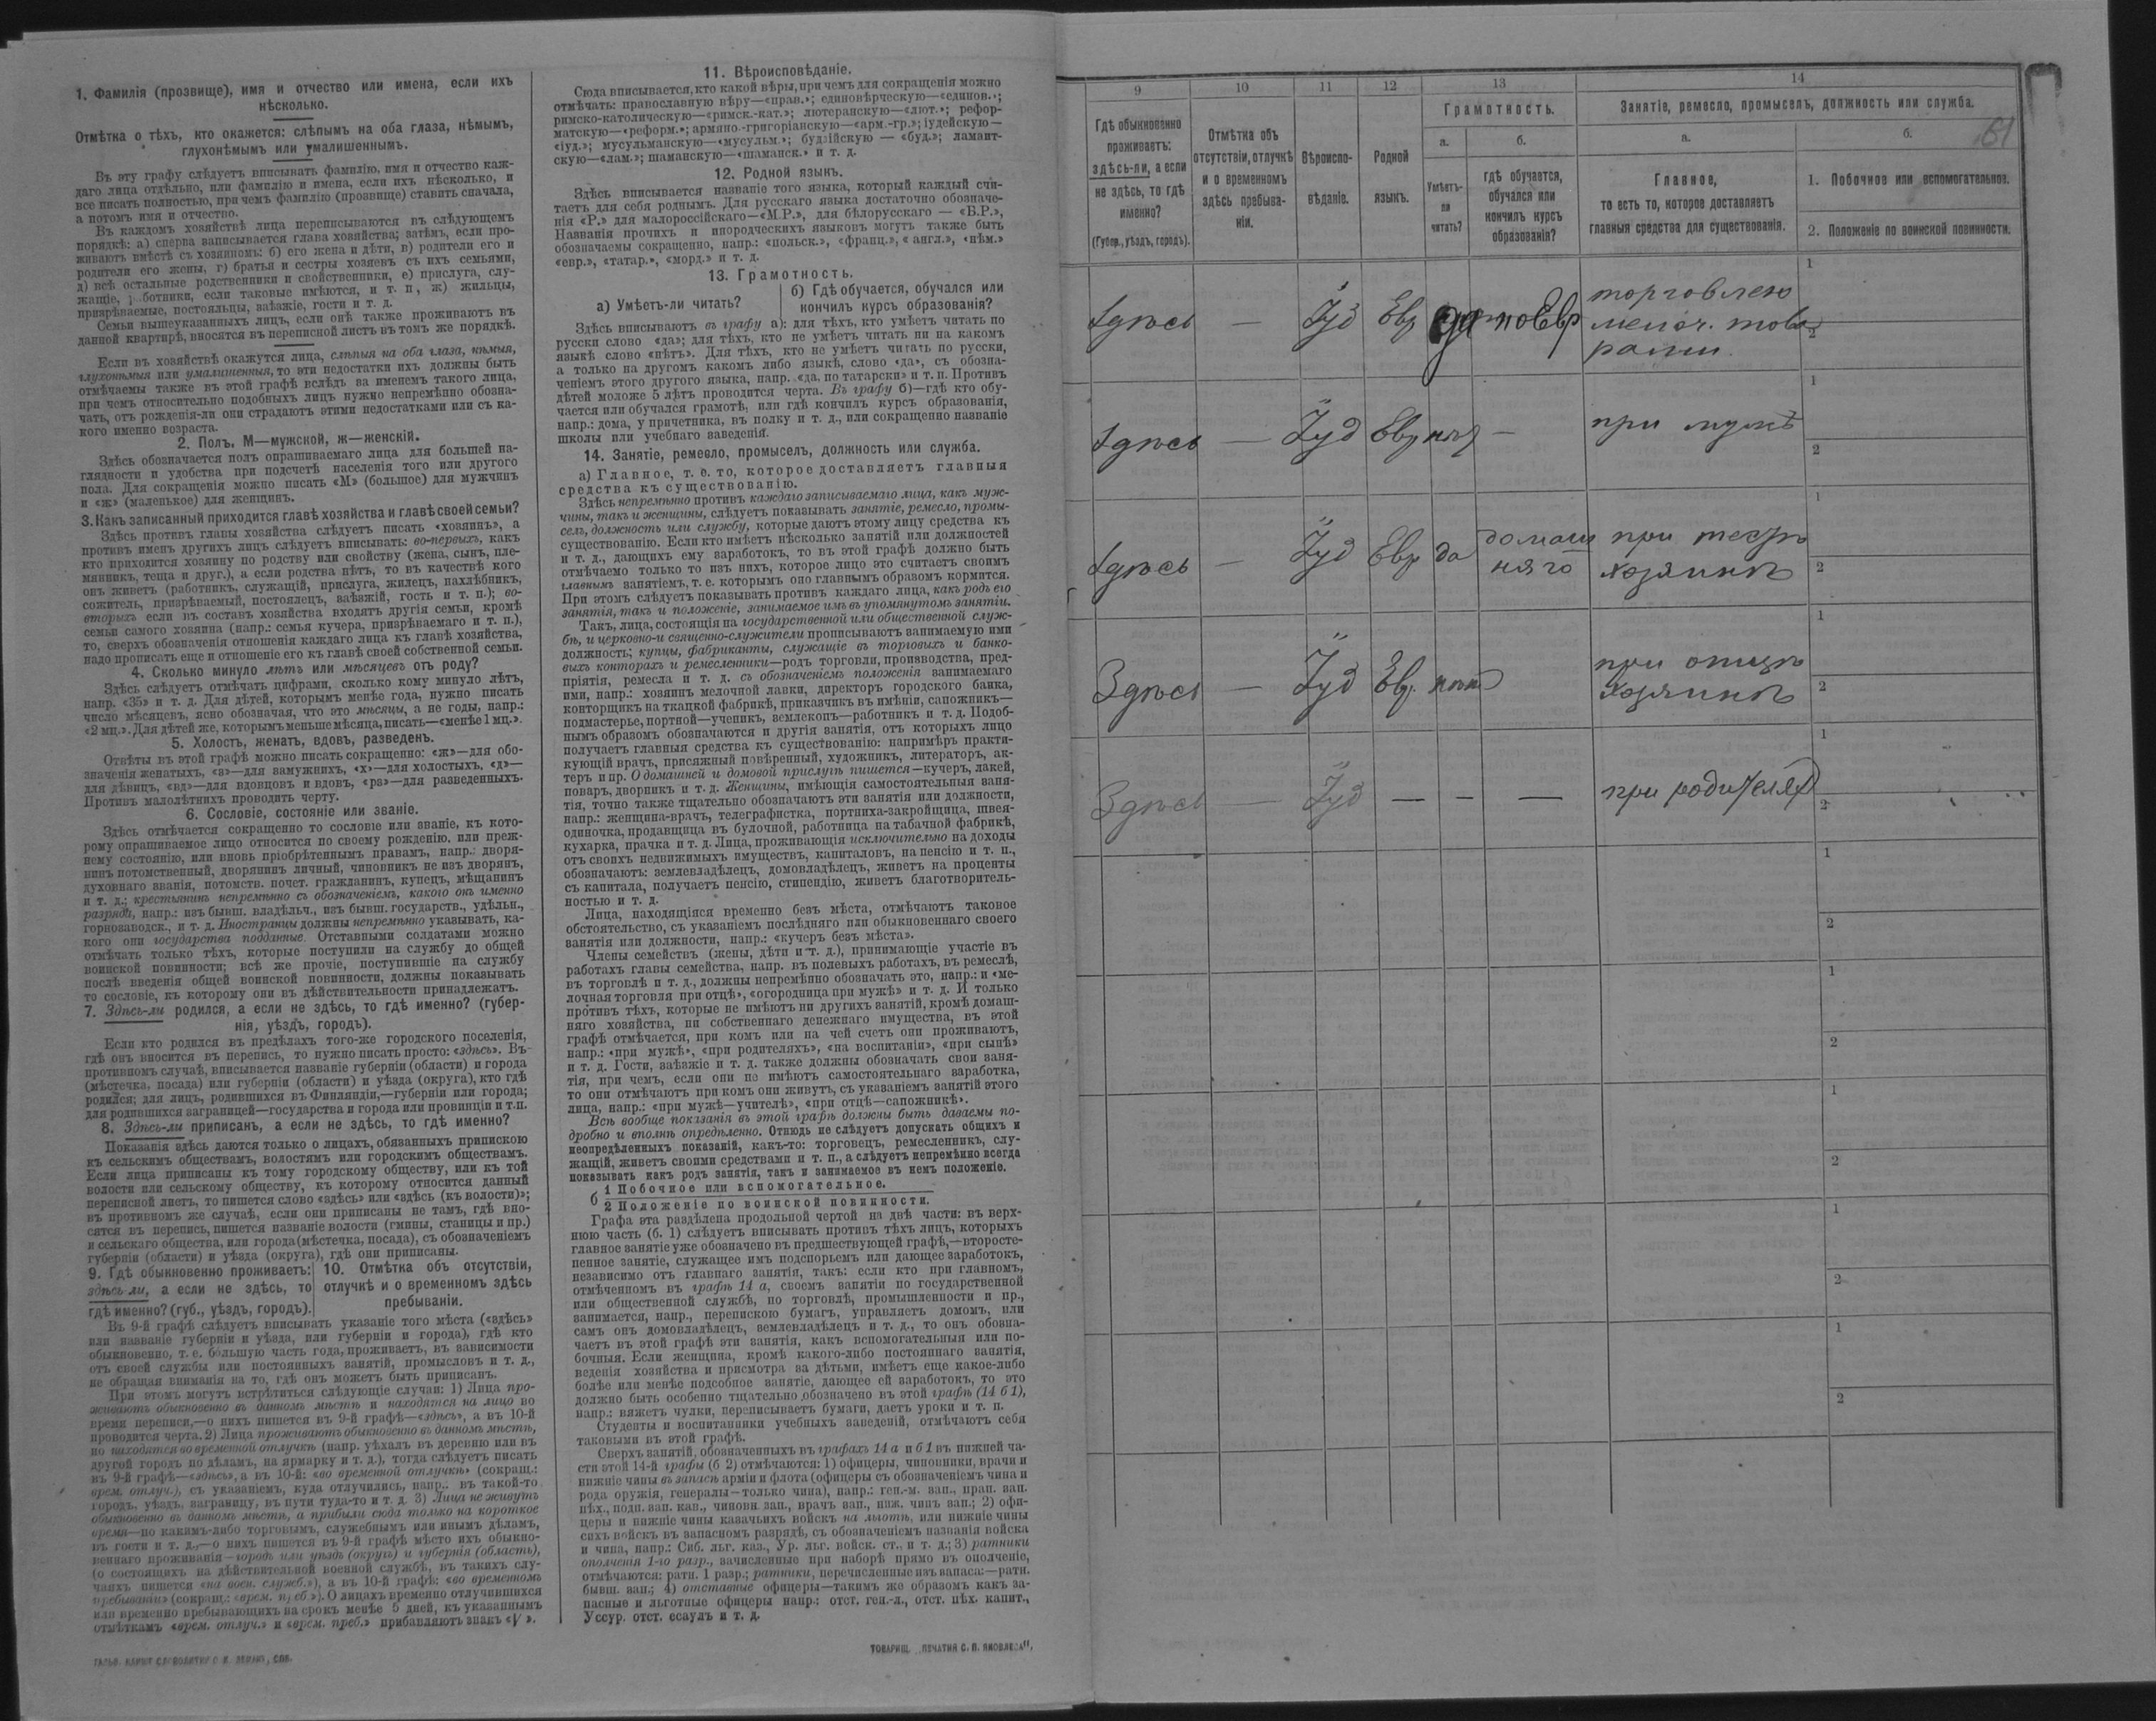 1. Фамилія (прозвище), имя и отчество или имена, если ихъ
нѣсколько.
Отмѣтка о тѣхъ, кто окажется: слѣпымъ на оба глаза, нѣмымъ,
глухонѣмымъ или умалишоннымъ.
Въ эту графу слѣдуетъ вписывать фамилію, имя и отчество каж-
даго лица отдѣльно, или фамилію и имена, если ихъ нѣсколько, и
все писать полностью, при чемъ фамилію (прозвище) ставить сначала,
а потомъ имя и отчество.
Въ каждомъ хозяйствѣ лица переписываются въ слѣдующемъ
порядкѣ: а) сперва записывается глава хозяйства; затѣмъ, если про-
живаютъ вмѣстѣ съ хозяиномъ: б) его жена и дѣти, в) родители его и
родители его жены, г) братья и сестры хозяевъ съ ихъ семьями,
д) всѣ остальные родственники и свойственники, е) прислуга, слу-
жащіе, работники, если таковые имѣются, и т. п., ж) жильцы,
призрѣваемые, постояльцы, заѣзжіе, гости и т. д.
Семьи вышеуказанныхъ лицъ, если онѣ также проживаютъ въ
данной квартирѣ, вносятся въ переписной листъ въ томъ же порядкѣ.
Если въ хозяйствѣ окажутся лица, слѣпыя на оба глаза, нѣмыя,
глухонѣмыя или умалишенныя, то эти недостатки ихъ должны быть
отмѣчаемы также въ этой графѣ вслѣдъ за именемъ такого лица,
при чемъ относительно подобныхъ лицъ нужно непремѣнно обозна-
чать, отъ рожденія-ли они страдаютъ этими недостатками или съ ка-
кого именно возраста.
2. Полъ, М—мужской, ж—женскій.
Здѣсь обозначается полъ опрашиваемаго лица для большей на-
глядности и удобства при подсчетѣ населенія того или другого
пола. Для сокращенія можно писать «М» (большое) для мужчинъ
и «ж» (маленькое) для женщинъ.
3. Какъ записанный приходится главѣ хозяйства и главѣ своей семьи?
Здѣсь противъ главы хозяйства слѣдуетъ писать «хозяинъ», а
противъ именъ другихъ лицъ слѣдуетъ вписывать: во-первыхъ, какъ
кто приходится хозяину по родству или свойству (жена, сынъ, пле-
мянникъ, теща и друг.), а если родства нѣтъ, то въ качествѣ кого
онъ живетъ (работникъ, служащій, прислуга, жилецъ, нахлѣбникъ,
сожитель, призрѣваемый, постоялецъ, заѣзжій, гость и т. п.); во-
вторыхъ если въ составъ хозяйства входятъ другія семьи, кромѣ
семьи самого хозяина (напр.: семья кучера, призрѣваемаго и т. п.),
то, сверхъ обозначенія отношенія каждаго лица къ главѣ хозяйства,
надо прописать еще и отношеніе его къ главѣ своей собственной семьи.
4. Сколько минуло лѣтъ или мѣсяцевъ отъ роду?
Здѣсь слѣдуетъ отмѣчать цифрами, сколько кому минуло лѣтъ,
напр. «35» и т. д. Для дѣтей, которымъ менѣе года, нужно писать
число мѣсяцевъ, ясно обозначая, что это мѣсяцы, а не годы, напр.:
«2 мц.». Для дѣтей же, которымъ меньше мѣсяца, писать—«менѣе 1 мц.».
5. Холостъ, женатъ, вдовъ, разведенъ.
Отвѣты въ этой графѣ можно писать сокращенно: «ж»—для обо-
значенія женатыхъ, «з»—для замужнихъ, «х»—для холостыхъ, «д»—
для дѣвицъ, «вд»—для вдовцовъ и вдовъ, «рз»—для разведенныхъ.
Противъ малолѣтнихъ проводить черту.
6. Сословіе, состояніе или званіе.
Здѣсь отмѣчается сокращенно то сословіе или званіе, къ кото-
рому опрашиваемое лицо относится по своему рожденію, или преж-
нему состоянію, или вновь пріобрѣтеннымъ правамъ, напр.: дворя-
нинъ потомственный, дворянинъ личный, чиновникъ не изъ дворянъ,
духовнаго званія, потомств. почет. гражданинъ, купецъ, мѣщанинъ
и т. д.; крестьянинъ непремѣнно съ обозначеніемъ, какого онъ именно
разряда, напр.: изъ бывш. владѣльч., изъ бывш. государств., удѣльн.,
горнозаводск., и т. д. Иностранцы должны непремѣнно указывать, ка-
кого они государства подданные. Отставными солдатами можно
отмѣчать только тѣхъ, которые поступили на службу до общей
воинской повинности; всѣ же прочіе, поступившіе на службу
послѣ введенія общей воинской повинности, должны показывать
то сословіе, къ которому они въ дѣйствительности принадлежатъ.
7. Здѣсь-ли родился, а если не здѣсь, то гдѣ именно? (губер-
нія, уѣздъ, городъ).
Если кто родился въ предѣлахъ того-же городского поселенія,
гдѣ онъ вносится въ перепись, то нужно писать просто: «здѣсь». Въ
противномъ случаѣ, вписывается названіе губерніи (области) и города
(мѣстечка, посада) или губерніи (области) и уѣзда (округа), кто гдѣ
родился; для лицъ, родившихся въ Финляндіи,—губерніи или города;
для родившихся заграницей—государства и города или провинціи и т.п.
8. Здѣсь-ли приписанъ, а если не здѣсь, то гдѣ именно?
Показанія здѣсь даются только о лицахъ, обязанныхъ припискою
къ сельскимъ обществамъ, волостямъ или городскимъ обществамъ.
Если лица приписаны къ тому городскому обществу, или къ той
волости или сельскому обществу, къ которому относится данный
переписной листъ, то пишется слово «здѣсь» или «здѣсь (къ волости)»;
въ противномъ же случаѣ, если они приписаны не тамъ, гдѣ вно-
сятся въ перепись, пишется названіе волости (гмины, станицы и пр.)
и сельскаго общества, или города (мѣстечка, посада), съ обозначеніемъ
губерніи (области) и уѣзда (округа), гдѣ они приписаны.
9. Гдѣ обыкновенно проживаетъ:
здѣсь-ли, а если не здѣсь, то
гдѣ именно? (губ., уѣздъ, городъ).
10. Отмѣтка объ отсутствіи,
отлучкѣ и о временномъ здѣсь
пребываніи.
Въ 9-й графѣ слѣдуетъ вписывать указаніе того мѣста («здѣсь»
или названіе губерніи и уѣзда, или губерніи и города), гдѣ кто
обыкновенно, т. е. большую часть года, проживаетъ, въ зависимости
отъ своей службы или постоянныхъ занятій, промысловъ и т. д.,
не обращая вниманія на то, гдѣ онъ можетъ быть приписанъ.
При этомъ могутъ встрѣтиться слѣдующіе случаи: 1) Лица про-
живаютъ обыкновенно въ данномъ мѣстѣ и находятся на лицо во
время переписи,—о нихъ пишется въ 9-й графѣ—«здѣсь», а въ 10-й
проводится черта. 2) Лица проживаютъ обыкновенно въ данномъ мѣстѣ,
но находятся во временной отлучкѣ (напр. уѣхалъ въ деревню или въ
другой городъ по дѣламъ, на ярмарку и т. д.), тогда слѣдуетъ писать
въ 9-й графѣ—«здѣсь», а въ 10-й: «во временной отлучкѣ» (сокращ.:
врем. отлуч.), съ указаніемъ, куда отлучились, напр.: въ такой-то
городъ, уѣздъ, заграницу, въ пути туда-то и т. д. 3) Лица не живутъ
обыкновенно въ данномъ мѣстѣ, а прибыли сюда только на короткое
время—по какимъ-либо торговымъ, служебнымъ или инымъ дѣламъ,
въ гости и т. д.,—о нихъ пишется въ 9-й графѣ мѣсто ихъ обыкно-
веннаго проживанія—городъ или уѣздъ (округъ) и губернія (область),
(о состоящихъ на дѣйствительной военной службѣ, въ такихъ слу-
чаяхъ пишется «на воен. служб.»), а въ 10-й графѣ: «во временномъ
пребываніи» (сокращ.: «врем. преб.»). О лицахъ временно отлучившихся
или временно пребывающихъ на срокъ менѣе 5 дней, къ указаннымъ
отмѣткамъ «врем. отлуч.» и «врем. преб.» прибавляютъ знакъ «V».
11. Вѣроисповѣданіе.
Сюда вписывается, кто какой вѣры, при чемъ для сокращенія можно
отмѣчать: православную вѣру—«прав.»; единовѣрческую—«единов.»;
римско-католическую—«римск.-кат.»; лютеранскую—«лют.»; рефор-
матскую—«реформ.»; армяно-григоріанскую—«арм.-гр.»; іудейскую—
«іуд.»; мусульманскую—«мусульм.»; буддійскую — «буд.»; ламаит-
скую—«лам.»; шаманскую—«шаманск.» и т. д.
12. Родной языкъ.
Здѣсь вписывается названіе того языка, который каждый счи-
таетъ для себя роднымъ. Для русскаго языка достаточно обозначе-
нія «Р.» для малороссійскаго—«М.Р.», для бѣлорусскаго — «Б.Р.»,
Названія прочихъ и инородческихъ языковъ могутъ также быть
обозначаемы сокращенно, напр.: «польск.», «франц.», «англ.», «нѣм.»
«евр.», «татар.», «морд.» и т. д.
13. Грамотность.
а) Умѣетъ-ли читать?
б) Гдѣ обучается, обучался или
кончилъ курсъ образованія?
Здѣсь вписываютъ въ графу а): для тѣхъ, кто умѣетъ читать по
русски слово «да»; для тѣхъ, кто не умѣетъ читать ни на какомъ
языкѣ слово «нѣтъ». Для тѣхъ, кто не умѣетъ читать по русски,
а только на другомъ какомъ либо языкѣ, слово «да», съ обозна-
ченіемъ этого другого языка, напр. «да, по татарски» и т. п. Противъ
дѣтей моложе 5 лѣтъ проводится черта. Въ графу б)—гдѣ кто обу-
чается или обучался грамотѣ, или гдѣ кончилъ курсъ образованія,
напр.: дома, у причетника, въ полку и т. д., или сокращенно названіе
школы или учебнаго заведенія.
14. Занятіе, ремесло, промыселъ, должность или служба.
а) Главное, т. е. то, которое доставляетъ главныя
средства къ существованію.
Здѣсь непремѣнно противъ каждаго записываемаго лица, какъ муж-
чины, такъ и женщины, слѣдуетъ показывать занятіе, ремесло, промы-
селъ, должность или службу, которые даютъ этому лицу средства къ
существованію. Если кто имѣетъ нѣсколько занятій или должностей
и т. д., дающихъ ему заработокъ, то въ этой графѣ должно быть
отмѣчаемо только то изъ нихъ, которое лицо это считаетъ своимъ
главнымъ занятіемъ, т. е. которымъ оно главнымъ образомъ кормится.
При этомъ слѣдуетъ показывать противъ каждаго лица, какъ родъ его
занятія, такъ и положеніе, занимаемое имъ въ упомянутомъ занятіи.
Такъ, лица, состоящія на государственной или общественной служ-
бѣ, и церковно-и священно-служители прописываютъ занимаемую ими
должность; купцы, фабриканты, служащіе въ торговыхъ и банко-
выхъ конторахъ и ремесленники—родъ торговли, производства, пред-
пріятія, ремесла и т. д. съ обозначеніемъ положенія занимаемаго
ими, напр.: хозяинъ мелочной лавки, директоръ городского банка,
конторщикъ на ткацкой фабрикѣ, приказчикъ въ имѣніи, сапожникъ—
подмастерье, портной—ученикъ, землекопъ—работникъ и т. д. Подоб-
нымъ образомъ обозначаются и другія занятія, отъ которыхъ лицо
получаетъ главныя средства къ существованію: напримѣръ практи-
кующій врачъ, присяжный повѣренный, художникъ, литераторъ, ак-
теръ и пр. О домашней и домовой прислугѣ пишется—кучеръ, лакей,
поваръ, дворникъ и т. д. Женщины, имѣющія самостоятельныя заня-
тія, точно также тщательно обозначаютъ эти занятія или должности,
напр.: женщина-врачъ, телеграфистка, портниха-закройщица, швея-
одиночка, продавщица въ булочной, работница на табачной фабрикѣ,
кухарка, прачка и т. д. Лица, проживающія исключительно на доходы
отъ своихъ недвижимыхъ имуществъ, капиталовъ, на пенсію и т. п.,
обозначаютъ: землевладѣлецъ, домовладѣлецъ, живетъ на проценты
съ капитала, получаетъ пенсію, стипендію, живетъ благотворитель-
ностью и т. д.
Лица, находящіяся временно безъ мѣста, отмѣчаютъ таковое
обстоятельство, съ указаніемъ послѣдняго или обыкновеннаго своего
занятія или должности, напр.: «кучеръ безъ мѣста».
Члены семействъ (жены, дѣти и т. д.), принимающіе участіе въ
работахъ главы семейства, напр. въ полевыхъ работахъ, въ ремеслѣ,
въ торговлѣ и т. д., должны непремѣнно обозначать это, напр.: и «ме-
лочная торговля при отцѣ», «огородница при мужѣ» и т. д. И только
противъ тѣхъ, которые не имѣютъ ни другихъ занятій, кромѣ домаш-
няго хозяйства, ни собственнаго денежнаго имущества, въ этой
графѣ отмѣчается, при комъ или на чей счетъ они проживаютъ,
напр.: «при мужѣ», «при родителяхъ», «на воспитаніи», «при сынѣ»
и т. д. Гости, заѣзжіе и т. д. также должны обозначать свои заня-
тія, при чемъ, если они не имѣютъ самостоятельнаго заработка,
то они отмѣчаютъ при комъ они живутъ, съ указаніемъ занятій этого
лица, напр.: «при мужѣ—учителѣ», «при отцѣ—сапожникѣ».
Всѣ вообще показанія въ этой графѣ должны быть даваемы по-
дробно и вполнѣ опредѣленно. Отнюдь не слѣдуетъ допускать общихъ и
неопредѣленныхъ показаній, какъ-то: торговецъ, ремесленникъ, слу-
жащій, живетъ своими средствами и т. п., а слѣдуетъ непремѣнно всегда
показывать какъ родъ занятія, такъ и занимаемое въ немъ положеніе.
б 1 Побочное или вспомогательное.
2 Положеніе по воинской повинности.
Графа эта раздѣлена продольной чертой на двѣ части: въ верх-
нюю часть (б. 1) слѣдуетъ вписывать противъ тѣхъ лицъ, которыхъ
главное занятіе уже обозначено въ предшествующей графѣ,—второсте-
пенное занятіе, служащее имъ подспорьемъ или дающее заработокъ,
независимо отъ главнаго занятія, такъ: если кто при главномъ,
отмѣченномъ въ графѣ 14 а, своемъ занятіи по государственной
или общественной службѣ, по торговлѣ, промышленности и пр.,
занимается, напр., перепискою бумагъ, управляетъ домомъ, или
самъ онъ домовладѣлецъ, землевладѣлецъ и т. д., то онъ обозна-
чаетъ въ этой графѣ эти занятія, какъ вспомогательныя или по-
бочныя. Если женщина, кромѣ какого-либо постояннаго занятія,
веденія хозяйства и присмотра за дѣтьми, имѣетъ еще какое-либо
болѣе или менѣе подсобное занятіе, дающее ей заработокъ, то это
должно быть особенно тщательно обозначено въ этой графѣ (14 б 1),
напр.: вяжетъ чулки, переписываетъ бумаги, даетъ уроки и т. п.
Студенты и воспитанники учебныхъ заведеній, отмѣчаютъ себя
таковыми въ этой графѣ.
Сверхъ занятій, обозначенныхъ въ графахъ 14 а и б 1 въ нижней ча-
сти этой 14-й графы (б 2) отмѣчаются: 1) офицеры, чиновники, врачи и
нижніе чины въ запасѣ арміи и флота (офицеры съ обозначеніемъ чина и
рода оружія, генералы—только чина), напр.: ген.-м. зап., прап. зап.
пѣх., подп. зап. кав., чиновн. зап., врачъ зап., ниж. чинъ зап.; 2) офи-
церы и нижніе чины казачьихъ войскъ на льготѣ, или нижніе чины
сихъ войскъ въ запасномъ разрядѣ, съ обозначеніемъ названія войска
и чина, напр.: Сиб. льг. каз., Ур. льг. войск. ст., и т. д.; 3) ратники
ополченія 1-го разр., зачисленные при наборѣ прямо въ ополченіе,
отмѣчаются: ратн. 1 разр.; ратники, перечисленные изъ запаса:—ратн.
бывш. зап.; 4) отставные офицеры—такимъ же образомъ какъ за-
пасные и льготные офицеры напр.: отст. ген.-л., отст. пѣх. капит.,
Уссур. отст. есаулъ и т. д.
ТОВАРИЩ. „ПЕЧАТНЯ С. П. ЯКОВЛЕВА“,
9 10 11 12 13 14
Гдѣ обыкновенно
проживаетъ:
здѣсь-ли, а если
не здѣсь, то гдѣ
именно?
(Губер., уѣздъ, городъ).
Отмѣтка объ
отсутствіи, отлучкѣ
и о временномъ
здѣсь пребыва-
ніи.
Вѣроиспо-
вѣданіе.
Родной
языкъ.
Грамотность.
а.
Умѣетъ-
ли
читать?
б.
гдѣ обучается,
обучался или
кончилъ курсъ
образованія?
Занятіе, ремесло, промыселъ, должность или служба.
а.
Главное,
то есть то, которое доставляетъ
главныя средства для существованія.
б.
61
1. Побочное или вспомогательное.
2. Положеніе по воинской повинности.
Здѣсь — Іуд Евр да по Евр торговлею
мелоч. това
рами
1
2
Здѣсь — Іуд Евр нѣт — при мужѣ
1
2
Здѣсь — Іуд Евр да домаш
няго
при
хозяинѣ
1
2
Здѣсь — Іуд Евр. нѣт при отцѣ
хозяинѣ
1
2
Здѣсь — Іуд — — — при родителях
1
2
1
2
1
2
1
2
1
2
1
2